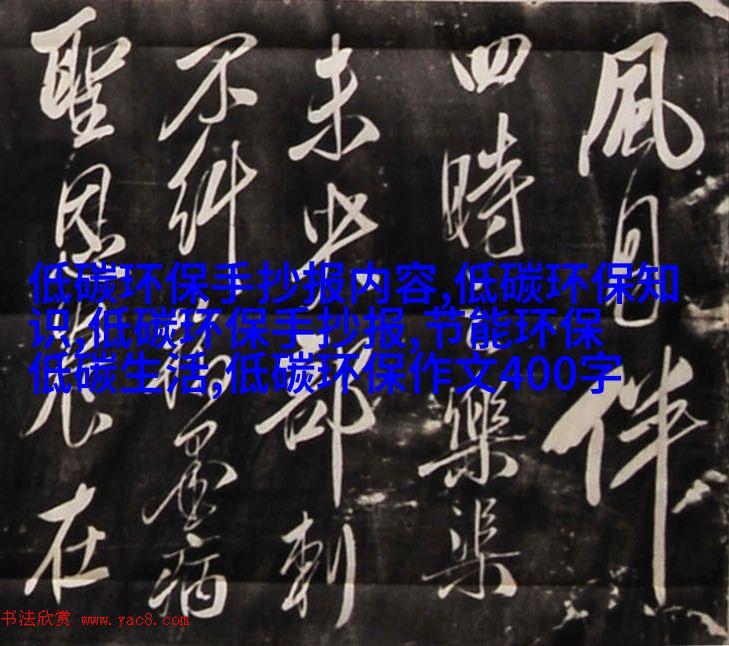 風月伴
四時樂渠
未郡刺
不糾病
聖恩在
低碳环保手抄报内容,低碳环保知
识,低碳环保手抄报,节能环保
低碳生活,低碳环保作文400字
书法欣赏 www.yac8.com